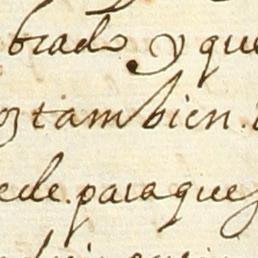 brado y que
tambien
ede. paraque